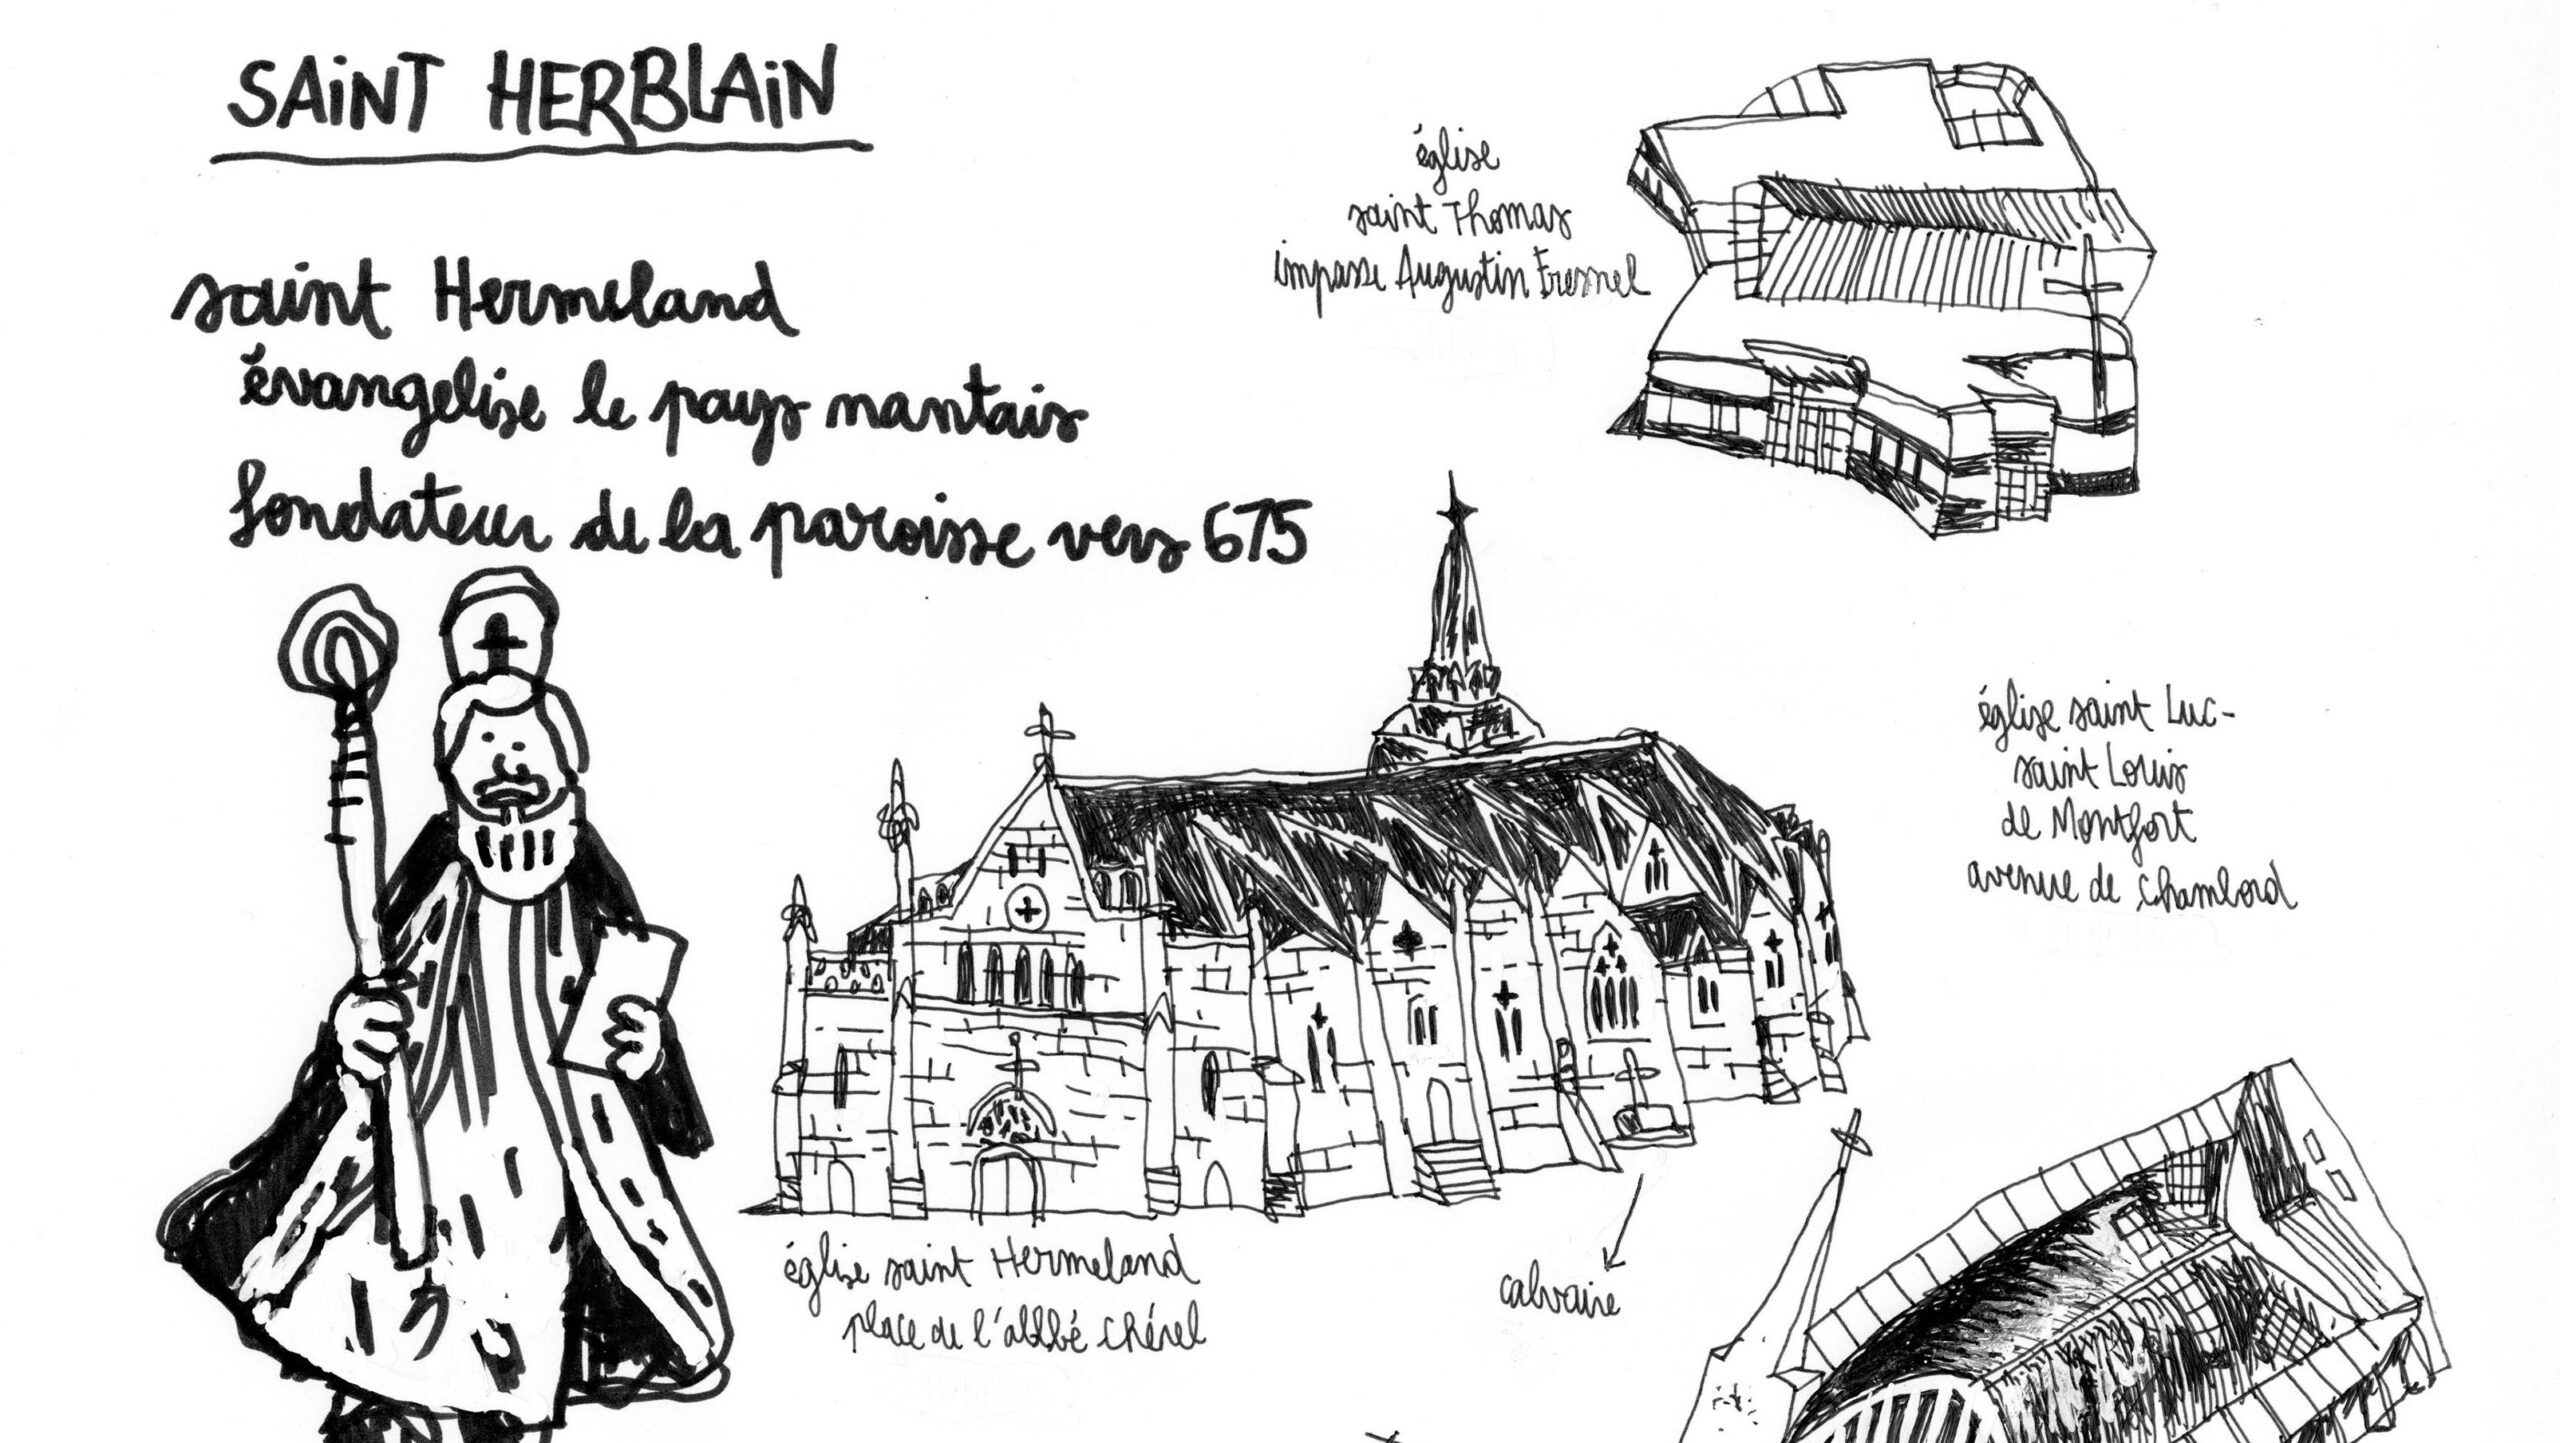 SAiNT HERBLAiN
saint Hermeland
évangelise le pays nantais
fondateur de la paroisse vers 675
église
saint Thomas
impasse Augustin Fresnel
église saint Luc-
saint Louis
de Montfort
avenue de Chambord
église saint Hermeland
place de l'abbé Chérel
calvaire